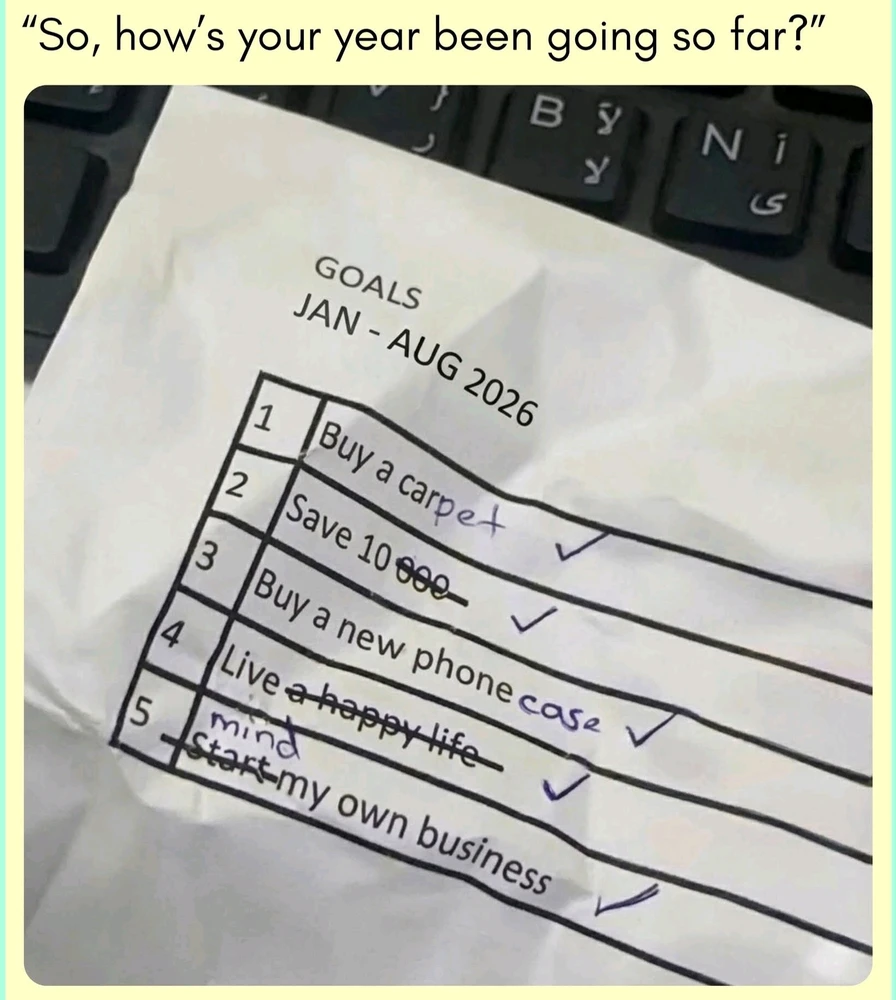 “So, how’s your year been going so far?”
B
N
GOALS
JAN - AUG 2026
1 Buy a carpet ✓
2 Save 10 000 ✓
3 Buy a new phone case ✓
4 Live a happy life ✓
mind
5 Start my own business ✓